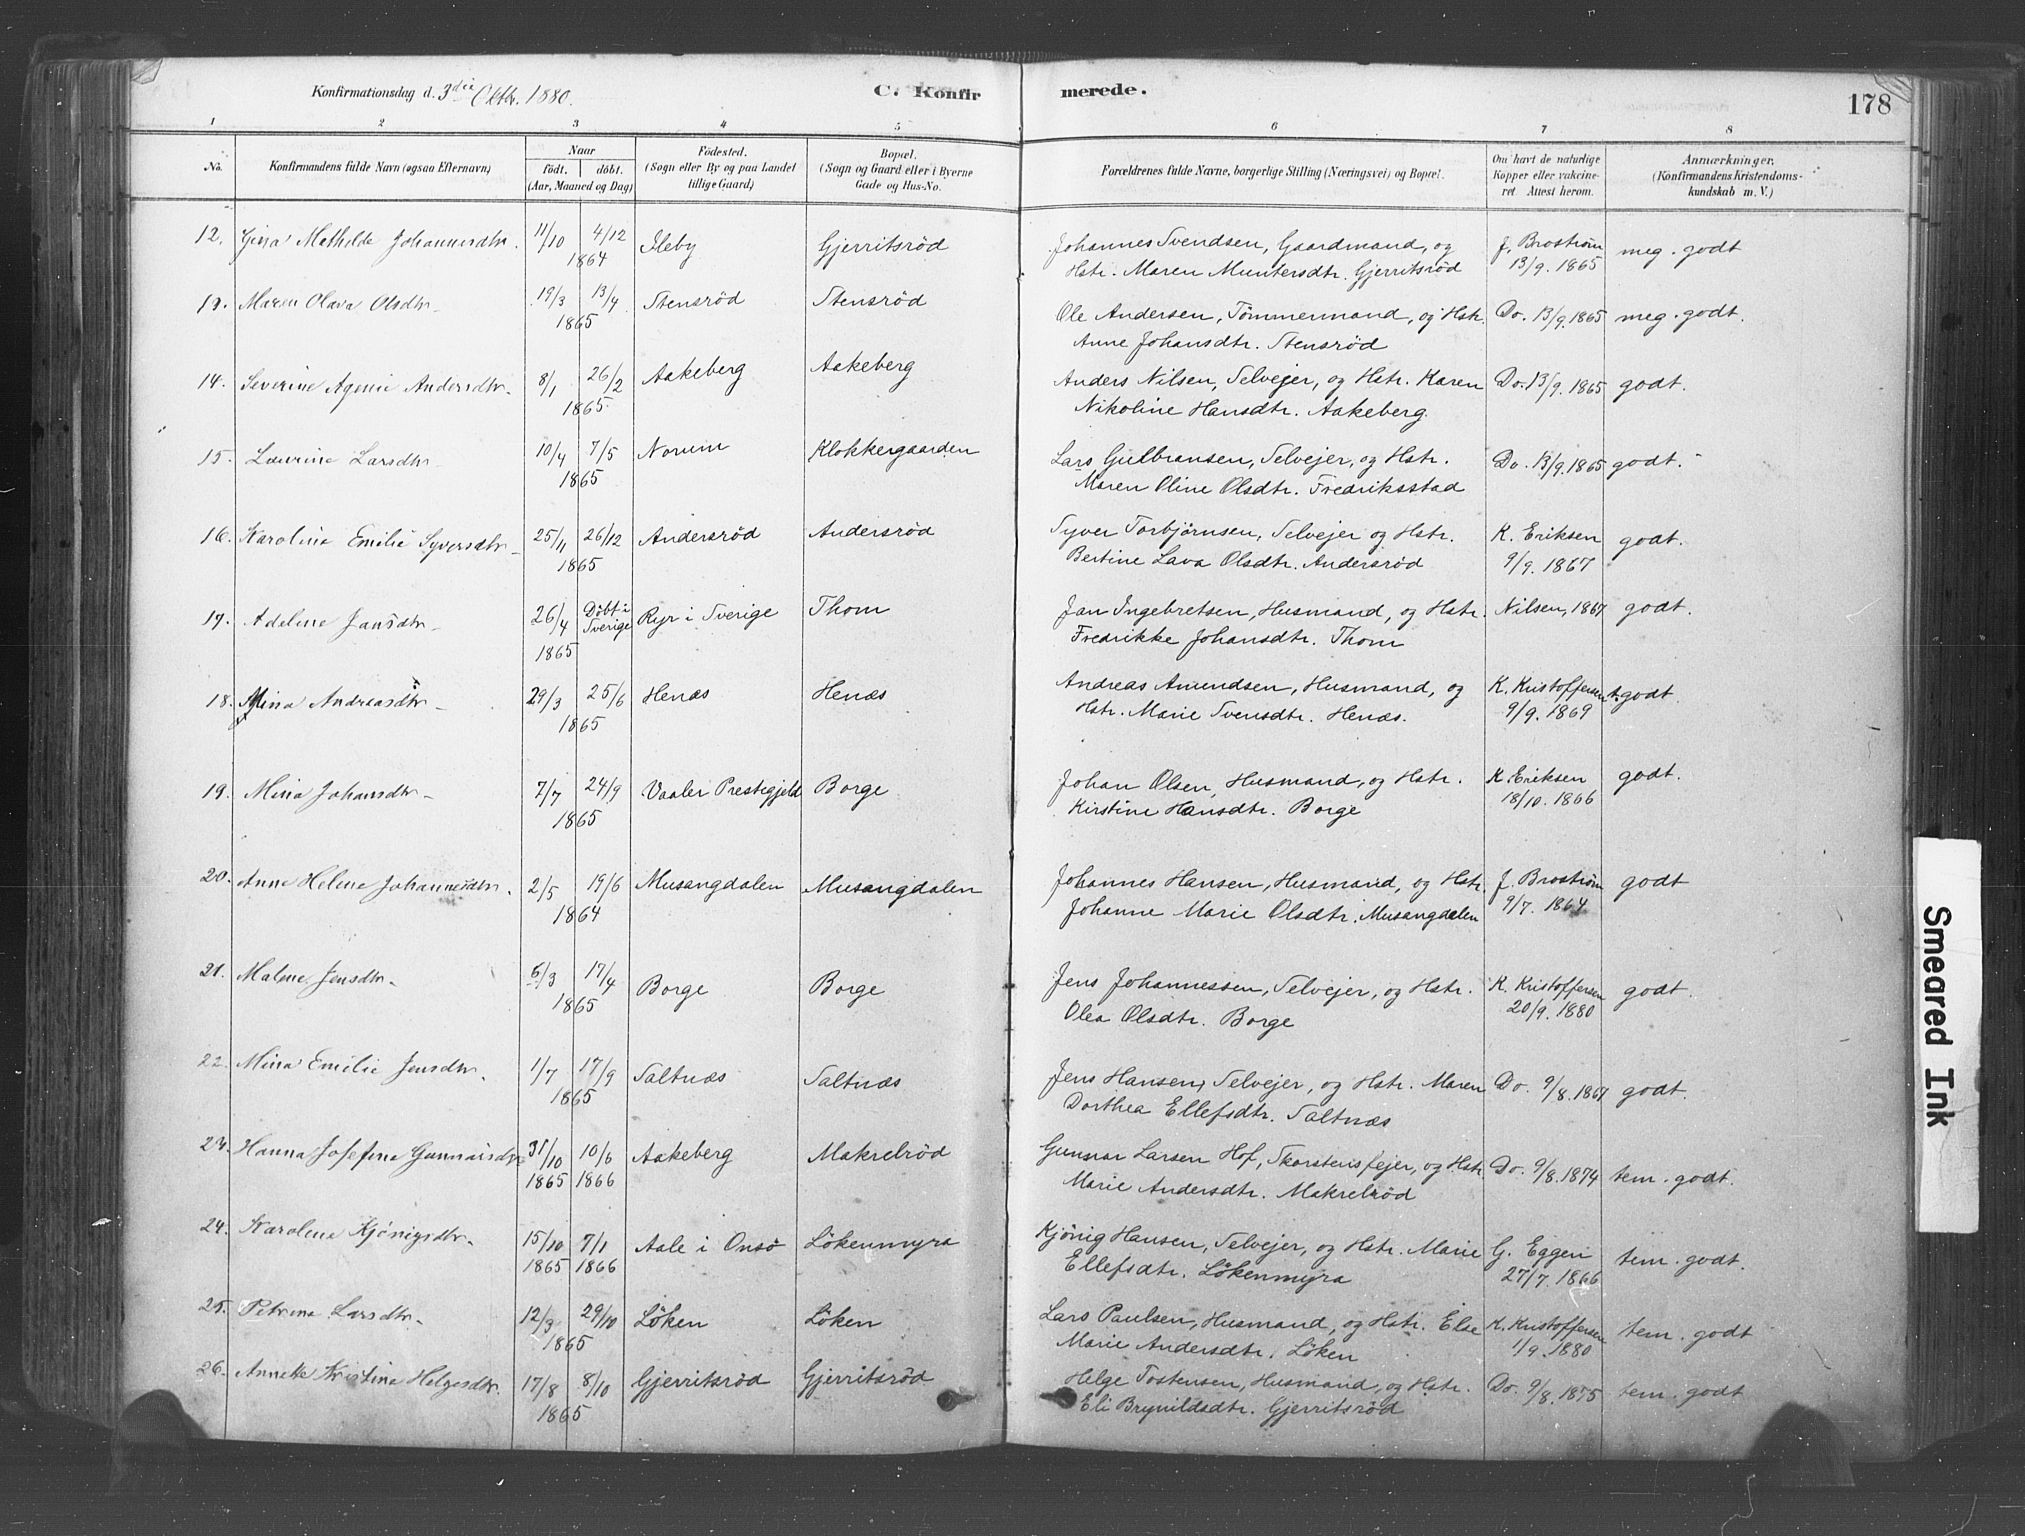 Konfirmationsdag d. 3die Oktbr. 1880.
C. Konfirmerede.
178
1 2 3 4 5 6 7 8
No.
Konfirmandens fulde Navn (ogsaa Efternavn)
Naar
födt. döbt.
(Aar, Maaned og Dag)
Födested.
(Sogn eller By og paa Landet
tillige Gaard.)
Bopæl.
(Sogn og Gaard eller i Byerne
Gade og Hus-No.
Forældrenes fulde Navne, borgerlige Stilling (Næringsvei) og Bopæl.
Om havt de naturlige
Kopper eller vakcine-
ret. Attest herom.
Anmærkninger.
(Konfirmandens Kristendoms-
kundskab m. V.)
12. Gina Mathilde Johannesdtr. 11/10 4/12 Ileby Gjerritsröd Johannes Svendsen, Gaardmand, og J. Broström meg. godt
1864 Hstr. Maren Muntersdtr. Gjerritsröd 13/9. 1865
13. Maren Olava Olsdtr. 19/3 13/4 Stensröd Stensröd Ole Andersen, Tömmermand, og Hstr. Do. 13/9. 1865 meg. godt.
1865 Anne Johansdtr. Stensröd
14. Severine Agenie Andersdtr. 8/1 26/2 Aakeberg Aakeberg Anders Nilsen, Selvejer, og Hstr. Karen Do. 13/9. 1865 godt.
1865 Nikoline Hansdtr. Aakeberg.
15. Laurine Larsdtr. 10/4 7/5 Norum Klokkergaarden Lars Gulbransen, Selvejer, og Hstr. Do. 13/9. 1865 godt.
1865 Maren Oline Olsdtr. Fredriksstad
16. Karoline Emilie Syversdtr. 25/11 26/12 Andersröd Andersröd Syver Torbjörnsen, Selvejer og Hstr. K. Eriksen godt.
1865 Bertine Lava Olsdtr. Andersröd 9/9. 1867
17. Adeline Jansdtr. 26/4 Döbt i Sverige Ryr i Sverige Thom Jan Ingebretsen, Husmand, og Hstr. Nilsen, 1867 godt.
1865 Fredrikke Johansdtr. Thom
18. Mina Andreasdtr. 29/3 25/6 Henæs Henæs Andreas Amundsen, Husmand, og K. Kristoffersen t. godt.
1865 Hstr. Marie Svensdtr. Henæs. 9/9. 1869
19. Mina Johansdtr. 7/7 24/9 Vaaler Prestegjeld Borge Johan Olsen, Husmand, og Hstr. K. Eriksen godt.
1865 Kirstine Hansdtr. Borge 18/10. 1866
20. Anne Helene Johannesdtr. 2/5 19/6 Musangdalen Musangdalen Johannes Hansen, Husmand, og Hstr. J. Broström godt
1864 Johanne Marie Olsdtr. Musangdalen 9/7. 1864
21. Malene Jensdtr. 6/3 17/4 Borge Borge Jens Johannessen, Selvejer, og Hstr. K. Kristoffersen godt.
1865 Olea Olsdtr. Borge 20/9. 1880
22. Mina Emilie Jensdtr. 1/7 17/9 Saltnæs Saltnæs Jens Hansen, Selvejer, og Hstr. Maren Do. 9/8. 1867 godt.
1865 Dorthea Ellefsdtr. Saltnæs
23. Hanna Josefine Gunnarsdtr. 31/10 10/6 Aakeberg Makrelröd Gunnar Larsen Hof, Skorstensfejer, og Hstr. Do. 9/8. 1874 tem. godt.
1865 1866 Marie Andersdtr. Makrelröd
24. Karoline Kjönigsdtr. 15/10 7/1 Aale i Onsö Lökenmyra Kjönig Hansen, Selvejer, og Hstr. Marie G. Eggen tem. godt.
1865 1866 Ellefsdtr. Lökenmyra 27/7. 1866
25. Petrine Larsdtr. 12/3 29/10 Löken Löken Lars Paulsen, Husmand, og Hstr. Else K. Kristoffersen tem. godt
1865 Marie Andersdtr. Löken 1/9. 1880
26. Annette Kristine Helgesdtr. 17/8 8/10 Gjerritsröd Gjerritsröd Helge Tostensen, Husmand, og Hstr. Do. 9/8. 1875 tem. godt
1865 Eli Brynildsdtr. Gjerritsröd
Smeared Ink